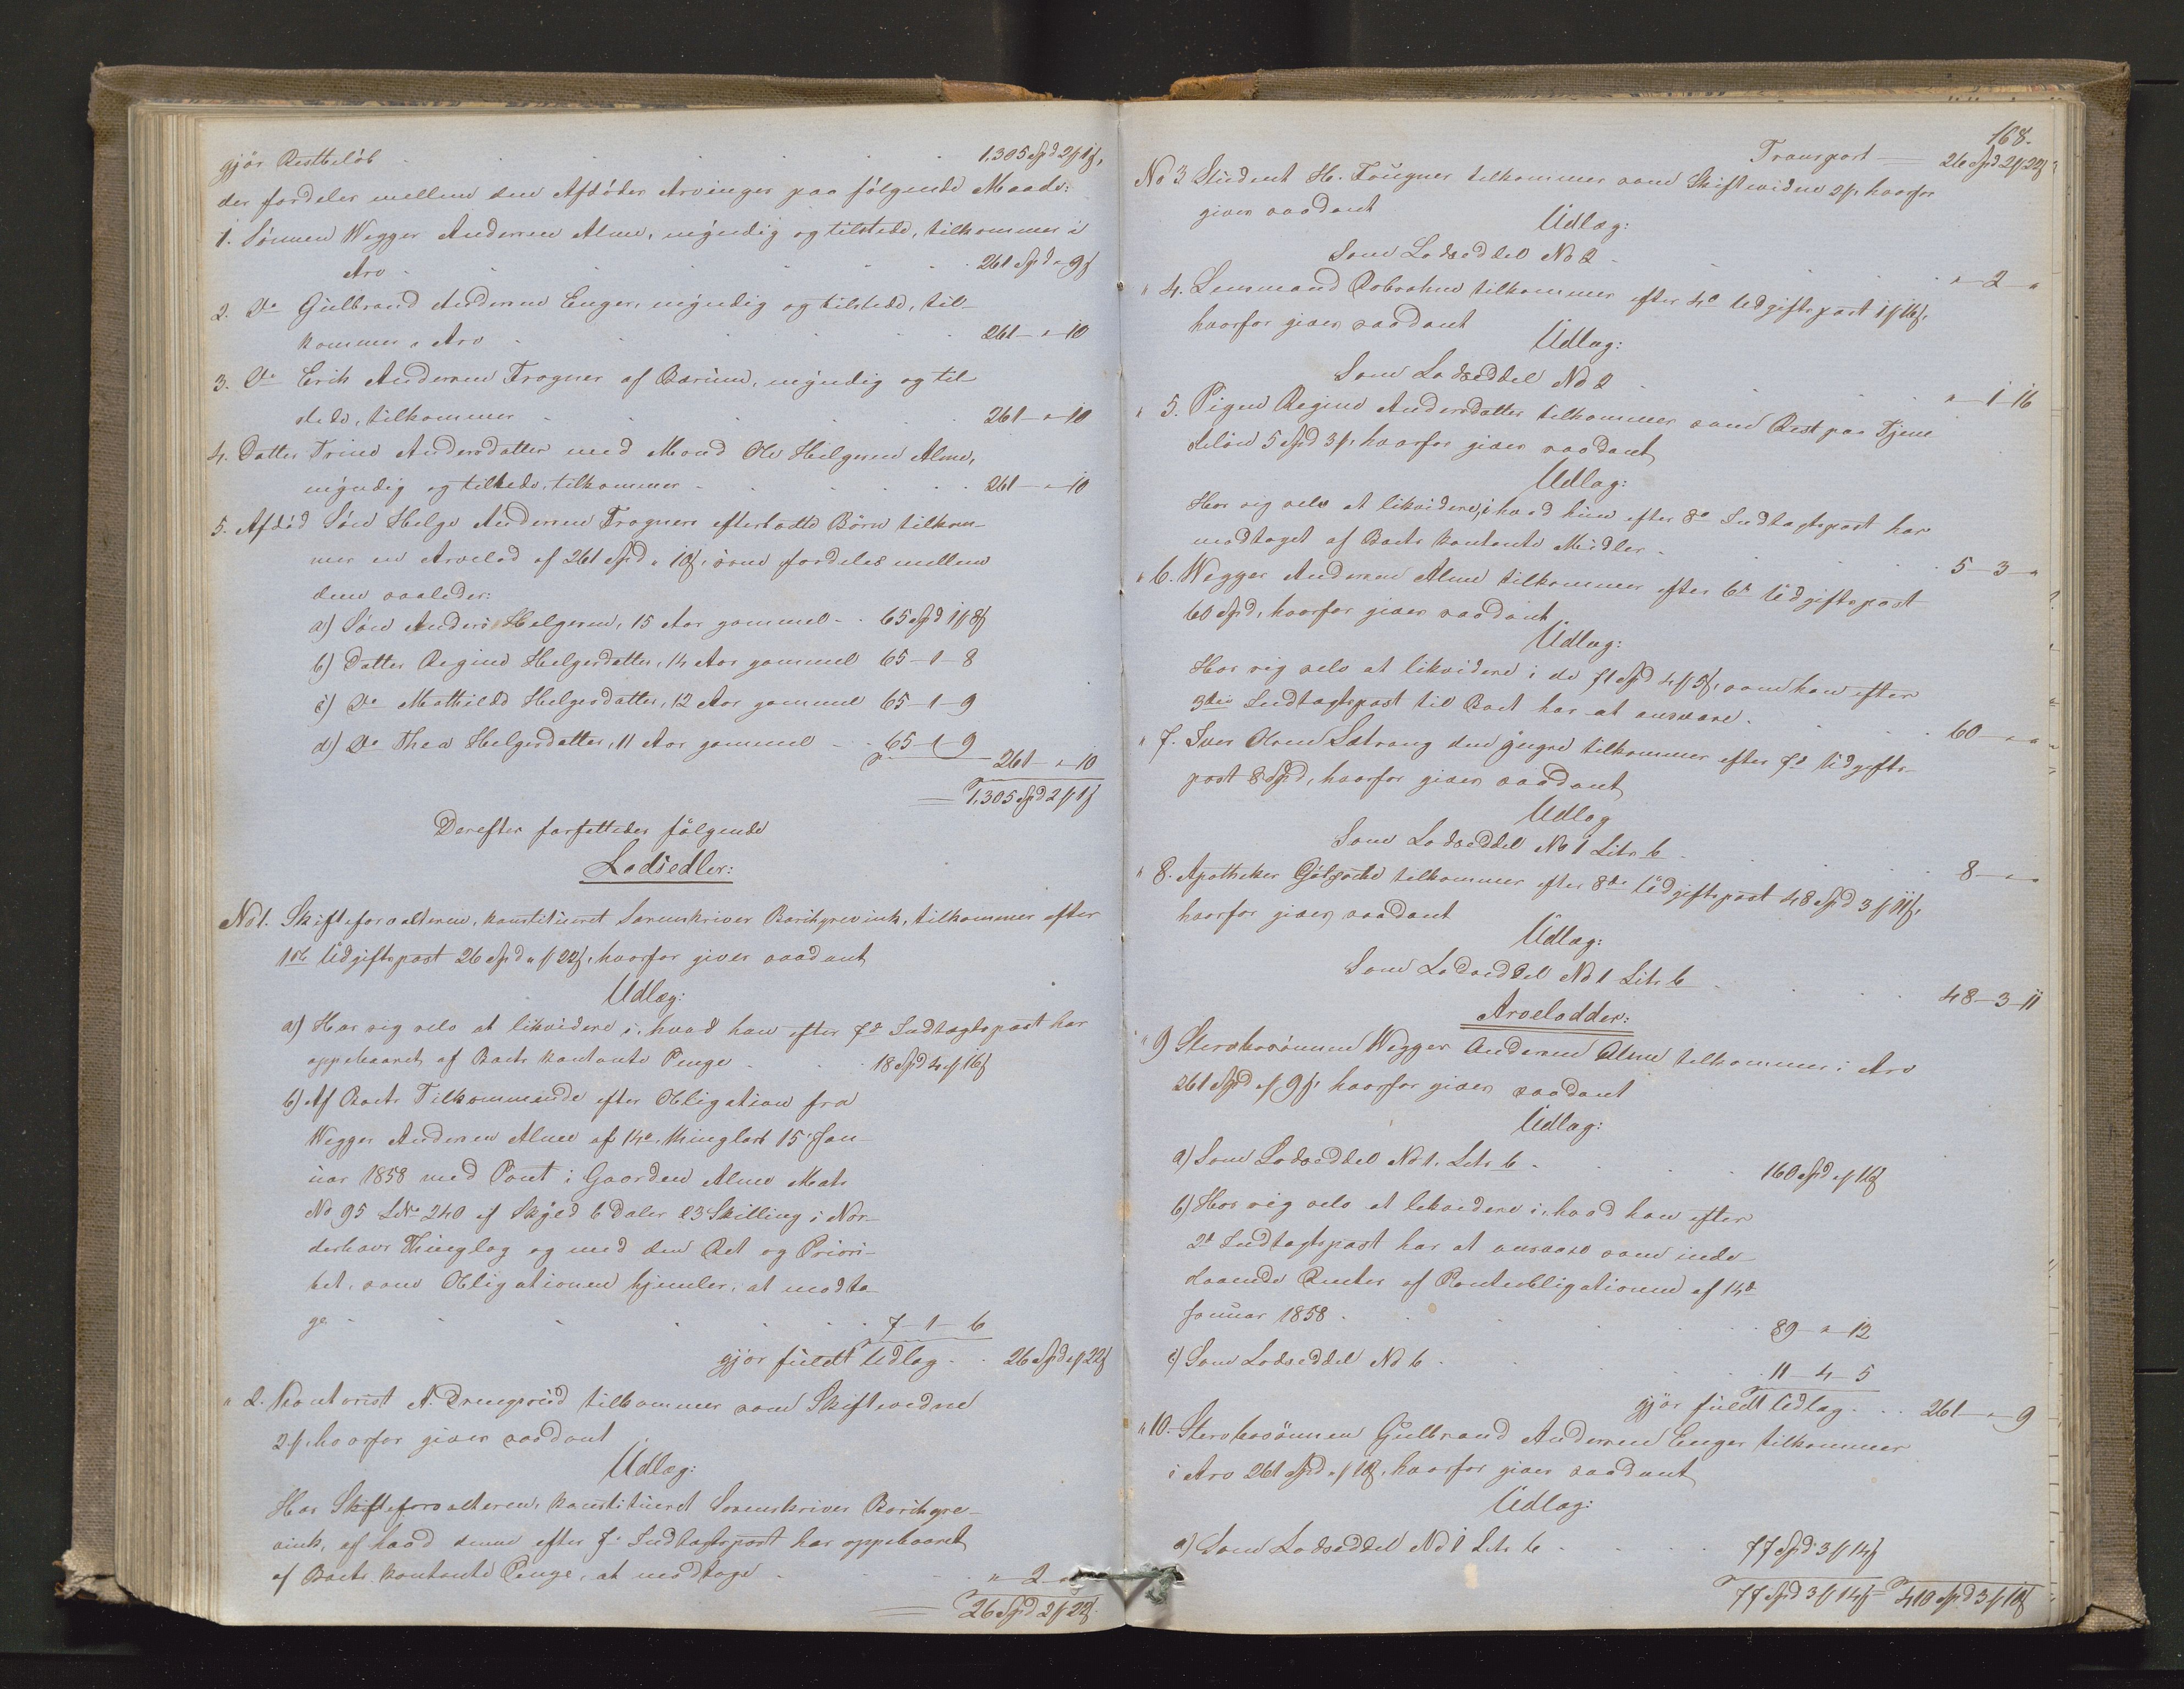 gjör Restbelöb . . . . . 1,305 Spd 2 ƒ 1 ß,
der fordeles mellem den Afdödes Arvinger paa fölgende Maade:
1. Sönnen Wegger Andersen Alme, myndig og tilstede, tilkommer i
Arv . . . . . 261 Spd „ 9 ß
2. Do Gulbrand Andersen Enger, myndig og tilstede, til-
kommer i Arv . . . . . 261 - „ - 10
3. Do Erik Andersen Frogner af Bærum, myndig og til
stede, tilkommer . . . . . 261 - „ - 10
4. Datter Trine Andersdatter med Mand Ole Helgesen Alme,
myndig og tilstede, tilkommer . . . . 261 - „ - 10
5. Afdöd Sön Helge Andersen Frogners efterladte Börn tilkom-
mer en Arvelod af 261 Spd „ 10 ß, som fordeles mellem
dem saaledes:
a) Sön Anders Helgesen, 15 Aar gammel . . 65 Spd 1 ƒ 8 ß
b) Datter Regine Helgesdatter, 14 Aar gammel 65 - 1 - 8
c) Do Mathilde Helgesdatter, 12 Aar gammel 65 - 1 - 9
d) Do Thea Helgesdatter, 11 Aar gammel . . 65 - 1 - 9
261 - „ - 10
= 1,305 Spd 2 ƒ 1 ß
Derefter forfattedes fölgende
Lodsedler:
No 1. Skifteforvalteren, konstitueret Sorenskriver Borchgrevink, tilkommer efter
1ste Udgiftspost 26 Spd „ ƒ 22 ß, hvorfor gives saadant
Udlæg:
a) Hos sig selv at likvidere i, hvad han efter 7de Indtægtspost har
oppebaaret af Boets kontante Penge . . . 18 Spd 4 ƒ 16 ß
b) Af Boets Tilkommende efter Obligation fra
Wegger Andersen Alme af 14de, thinglæst 15 Jan-
uar 1858 med Pant i Gaarden Alme Matr.
No 95 LNo 240 af Skyld 6 Daler 23 Skilling i Nor-
derhovs Thinglag og med den Ret og Priori-
tet, som Obligationen hjemler, at modta-
ge . . . . . 7 - 1 - 6
gjör fuldt Udlæg . . 26 Spd „ ƒ 22 ß
„ 2. Kontorist A. Drengsrud tilkommer som Skiftevidne
2 ƒ, hvorfor gives saadant
Udlæg:
Hos Skifteforvalteren, konstitueret Sorenskriver Borchgre-
vink, af hvad denne efter 7de Indtægtspost har oppebaaret
af Boets kontante Penge, at modtage . . . „ - 2 - „
= 26 Spd 2 ƒ 22 ß
168.
Transport = 26 Spd 2 ƒ 22 ß
No 3. Student H. Fougner tilkommer som Skiftevidne 2 ƒ, hvorfor
gives saadant
Udlæg:
Som Lodseddel No 2 . . . „ - 2 - „
„ 4. Lensmand tilkommer efter 4de Udgiftspost 1 ƒ 16 ß,
hvorfor gives saadant
Udlæg:
Som Lodseddel No 2 . . . „ - 1 - 16
„ 5. Pigen Regine Andersdatter tilkommer som Rest paa Tjene-
stelön 5 Spd 3 ƒ, hvorfor gives saadant
Udlæg:
Hos sig selv at likvidere i, hvad hun efter 8de Indtægtspost har
modtaget af Boets kontante Midler . . . 5 - 3 - „
„ 6. Wegger Andersen Alme tilkommer efter 6te Udgiftspost
60 Spd, hvorfor gives saadant
Udlæg:
Hos sig selv at likvidere i de 71 Spd 4 ƒ 5 ß, som han efter
3die Indtægtspost til Boet har at ansvare . . . 60 - „ - „
„ 7. Iver Olsen Sætrang den yngre tilkommer efter 7de Udgifts-
post 8 Spd, hvorfor gives saadant
Udlæg
Som Lodseddel No 1 Litr. b . . . 8 - „ - „
„ 8. Apotheker tilkommer efter 8de Udgiftspost 48 Spd 3 ƒ 11 ß,
hvorfor gives saadant
Udlæg:
Som Lodseddel No 1 Litr. b . . . 48 - 3 - 11
Arvelodder:
„ 9) Stervbosönnen Wegger Andersen Alme tilkommer i Arv
261 Spd „ ƒ 9 ß, hvorfor gives saadant
Udlæg:
a) Som Lodseddel No 1. Litr. b . . . 160 Spd „ ƒ 16 ß
b) Hos sig selv at likvidere i, hvad han efter
2de Indtægtspost har at ansvare som inde-
staaende Renter af Panteobligationen af 14de
Januar 1858 . . . 89 - „ - 12
c) Som Lodseddel No 6 . . . 11 - 4 - 5
gjör fuldt Udlæg . . . 261 - „ - 9
„ 10. Stervbosönnen Gulbrand Andersen Enger tilkommer
i Arv 261 Spd „ ƒ 10 ß, hvorfor gives saadant
Udlæg:
a) Som Lodseddel No 1 Litr. b . . . 77 Spd 3 ƒ 14 ß
77 Spd 3 ƒ 14 ß = 410 Spd 3 ƒ 10 ß